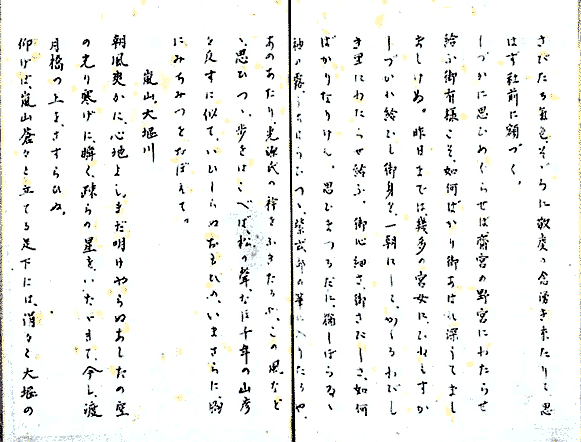 さびたる気色、そゞろに敬虔の念湧き来たりて思
はず社前に額づく。
しづかに思ひめぐらせば齋宮の野宮にわたらせ
給ふ御有様こそ、如何ばかり御あはれ深うてまし
ましけめ。昨日までは幾多の宮女にかしづか
しづかれ給ひし御身を、一朝にして、かくるわびし
き里にわたらせ給ふ、御心細さ、御さびしさ、如何
ばかりなりけん。思ひまつるだに、袖しぼらるゝ
袖の露うちはらひつゝ、紫式部の筆に入りたるや、
あのあたり光源氏の袴をふきたるは、この風など
ゝ、思ひつゝ、歩をはこべば、松の聲、など千年の山彦
を反すに似て、いひしらぬおもひの、いまさらに胸
にみちみつをおぼえて。
嵐山、大堰川
朝風爽かに、心地よし。まだ明けやらぬあしたの空
の光り寒げに、瞬く、疎らの星を、いたゞきて、今し、渡
月橋の上を、さすらひぬ。
仰げば、嵐山蒼々と立てる足下には、滔々と大堰の